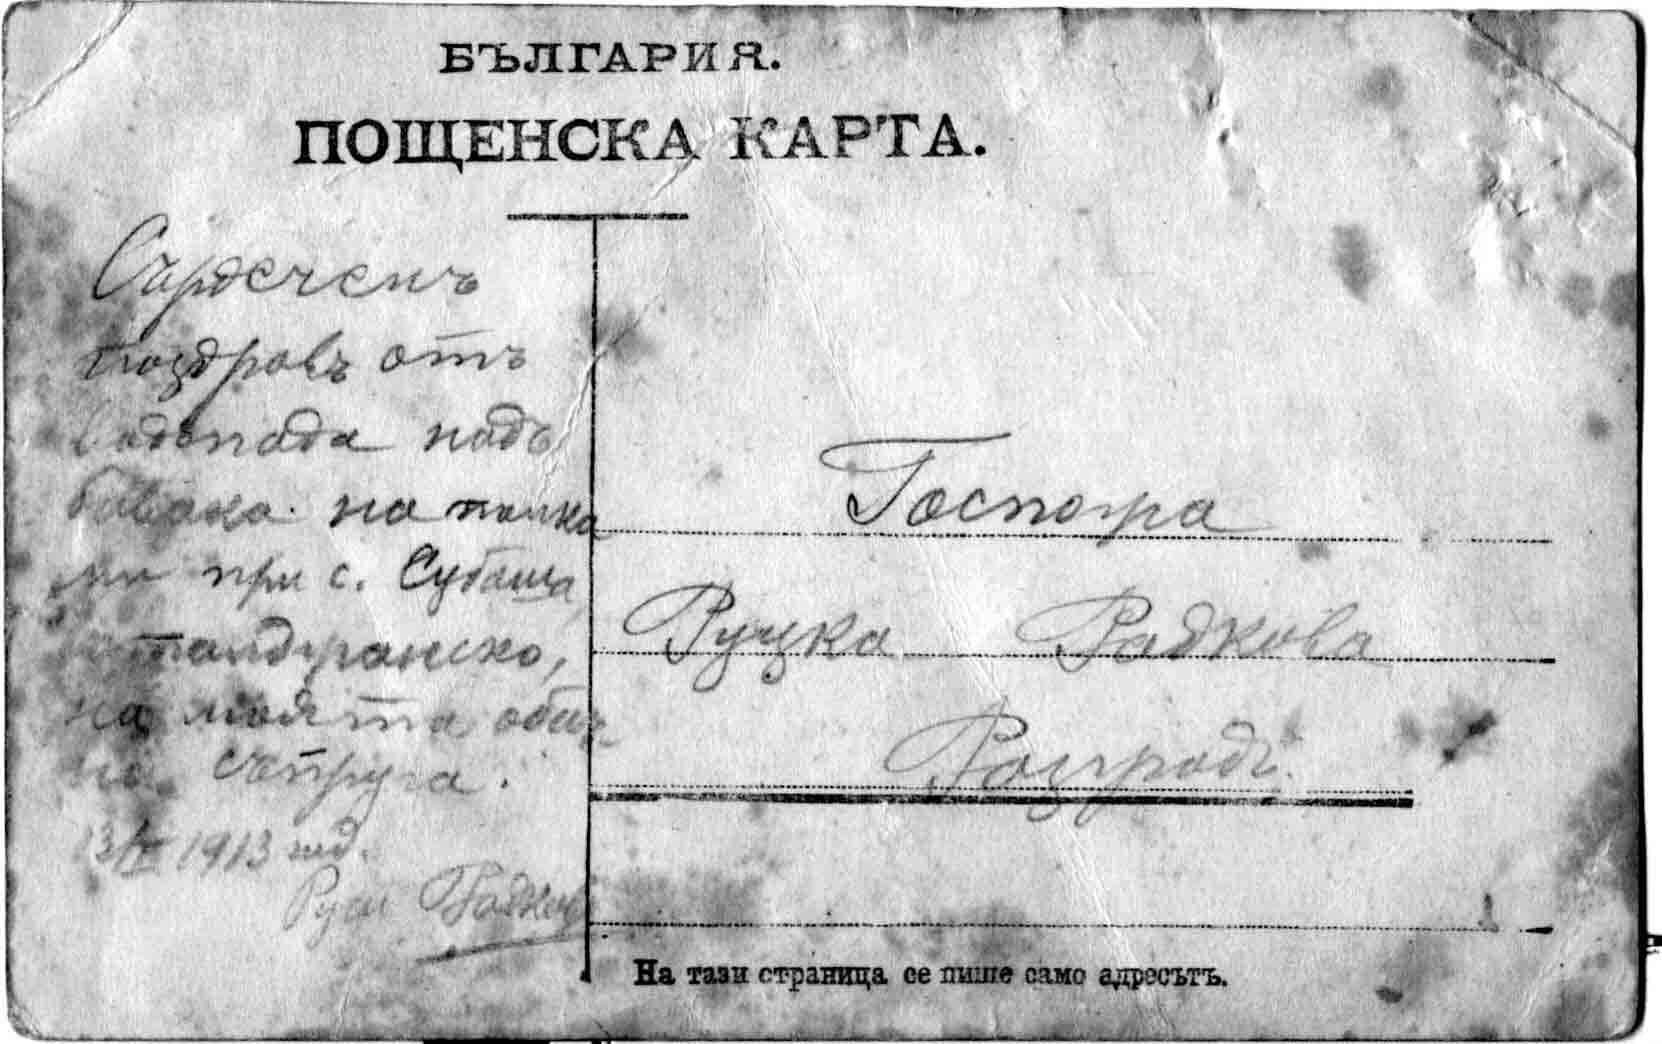 БЪЛГАРИЯ.
ПОЩЕНСКА КАРТА.
Сърдеченъ
поздравъ отъ
водопада надъ
бивака на полка
ми при с. Субаша,
на моята обич
на съпруга.
13/ 1913 год.
Руси Радков
Госпожа
Руцка Радкова
Разградъ.
На тази страница се пише само адресътъ.